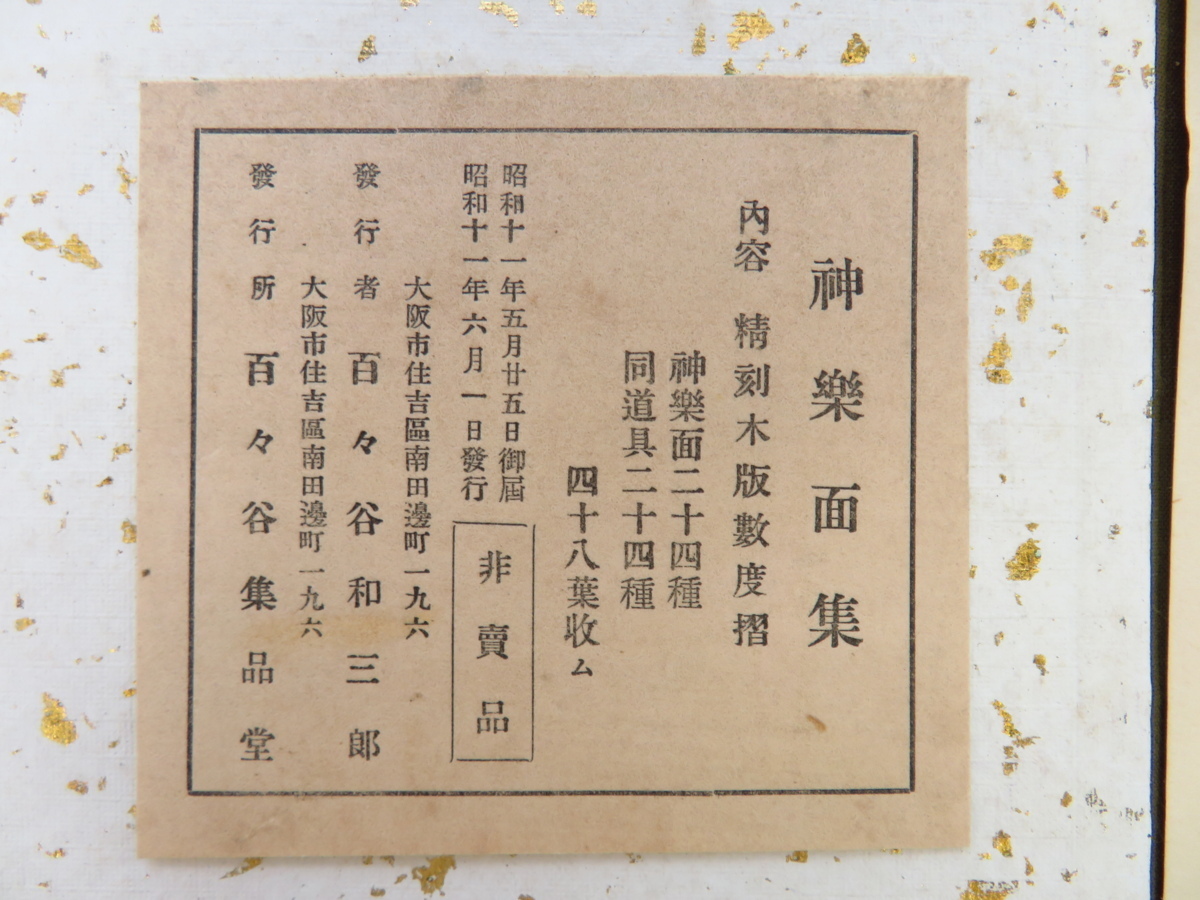 神樂面集
內容 精刻木版數度摺
神樂面二十四種
同道具二十四種
四十八葉收ム
昭和十一年五月廿五日御屆
昭和十一年六月一日發行
非賣品
大阪市住吉區南田邊町一九六
發行者 百々谷和三郞
大阪市住吉區南田邊町一九六
發行所 百々谷集品堂